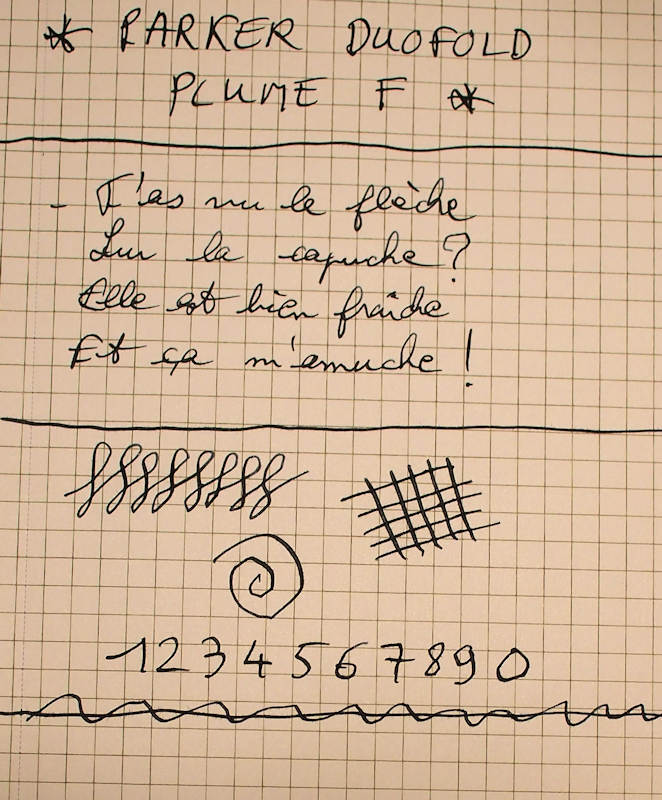 * PARKER DUOFOLD
PLUME F *
- T'as vu le flèche
Sur la capuche ?
Elle est bien fraîche
Et ça m'amuche !
1 2 3 4 5 6 7 8 9 0